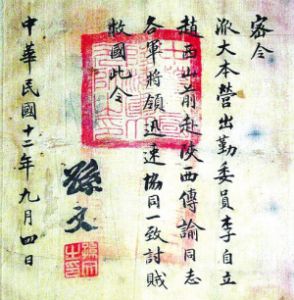 密令
派大本營出勤委員李自立
趙西山前赴陝西傳諭同志
各軍將領迅速協同一致討賊
救國此令
孫文
中華民國十二年九月四日
孫文之印